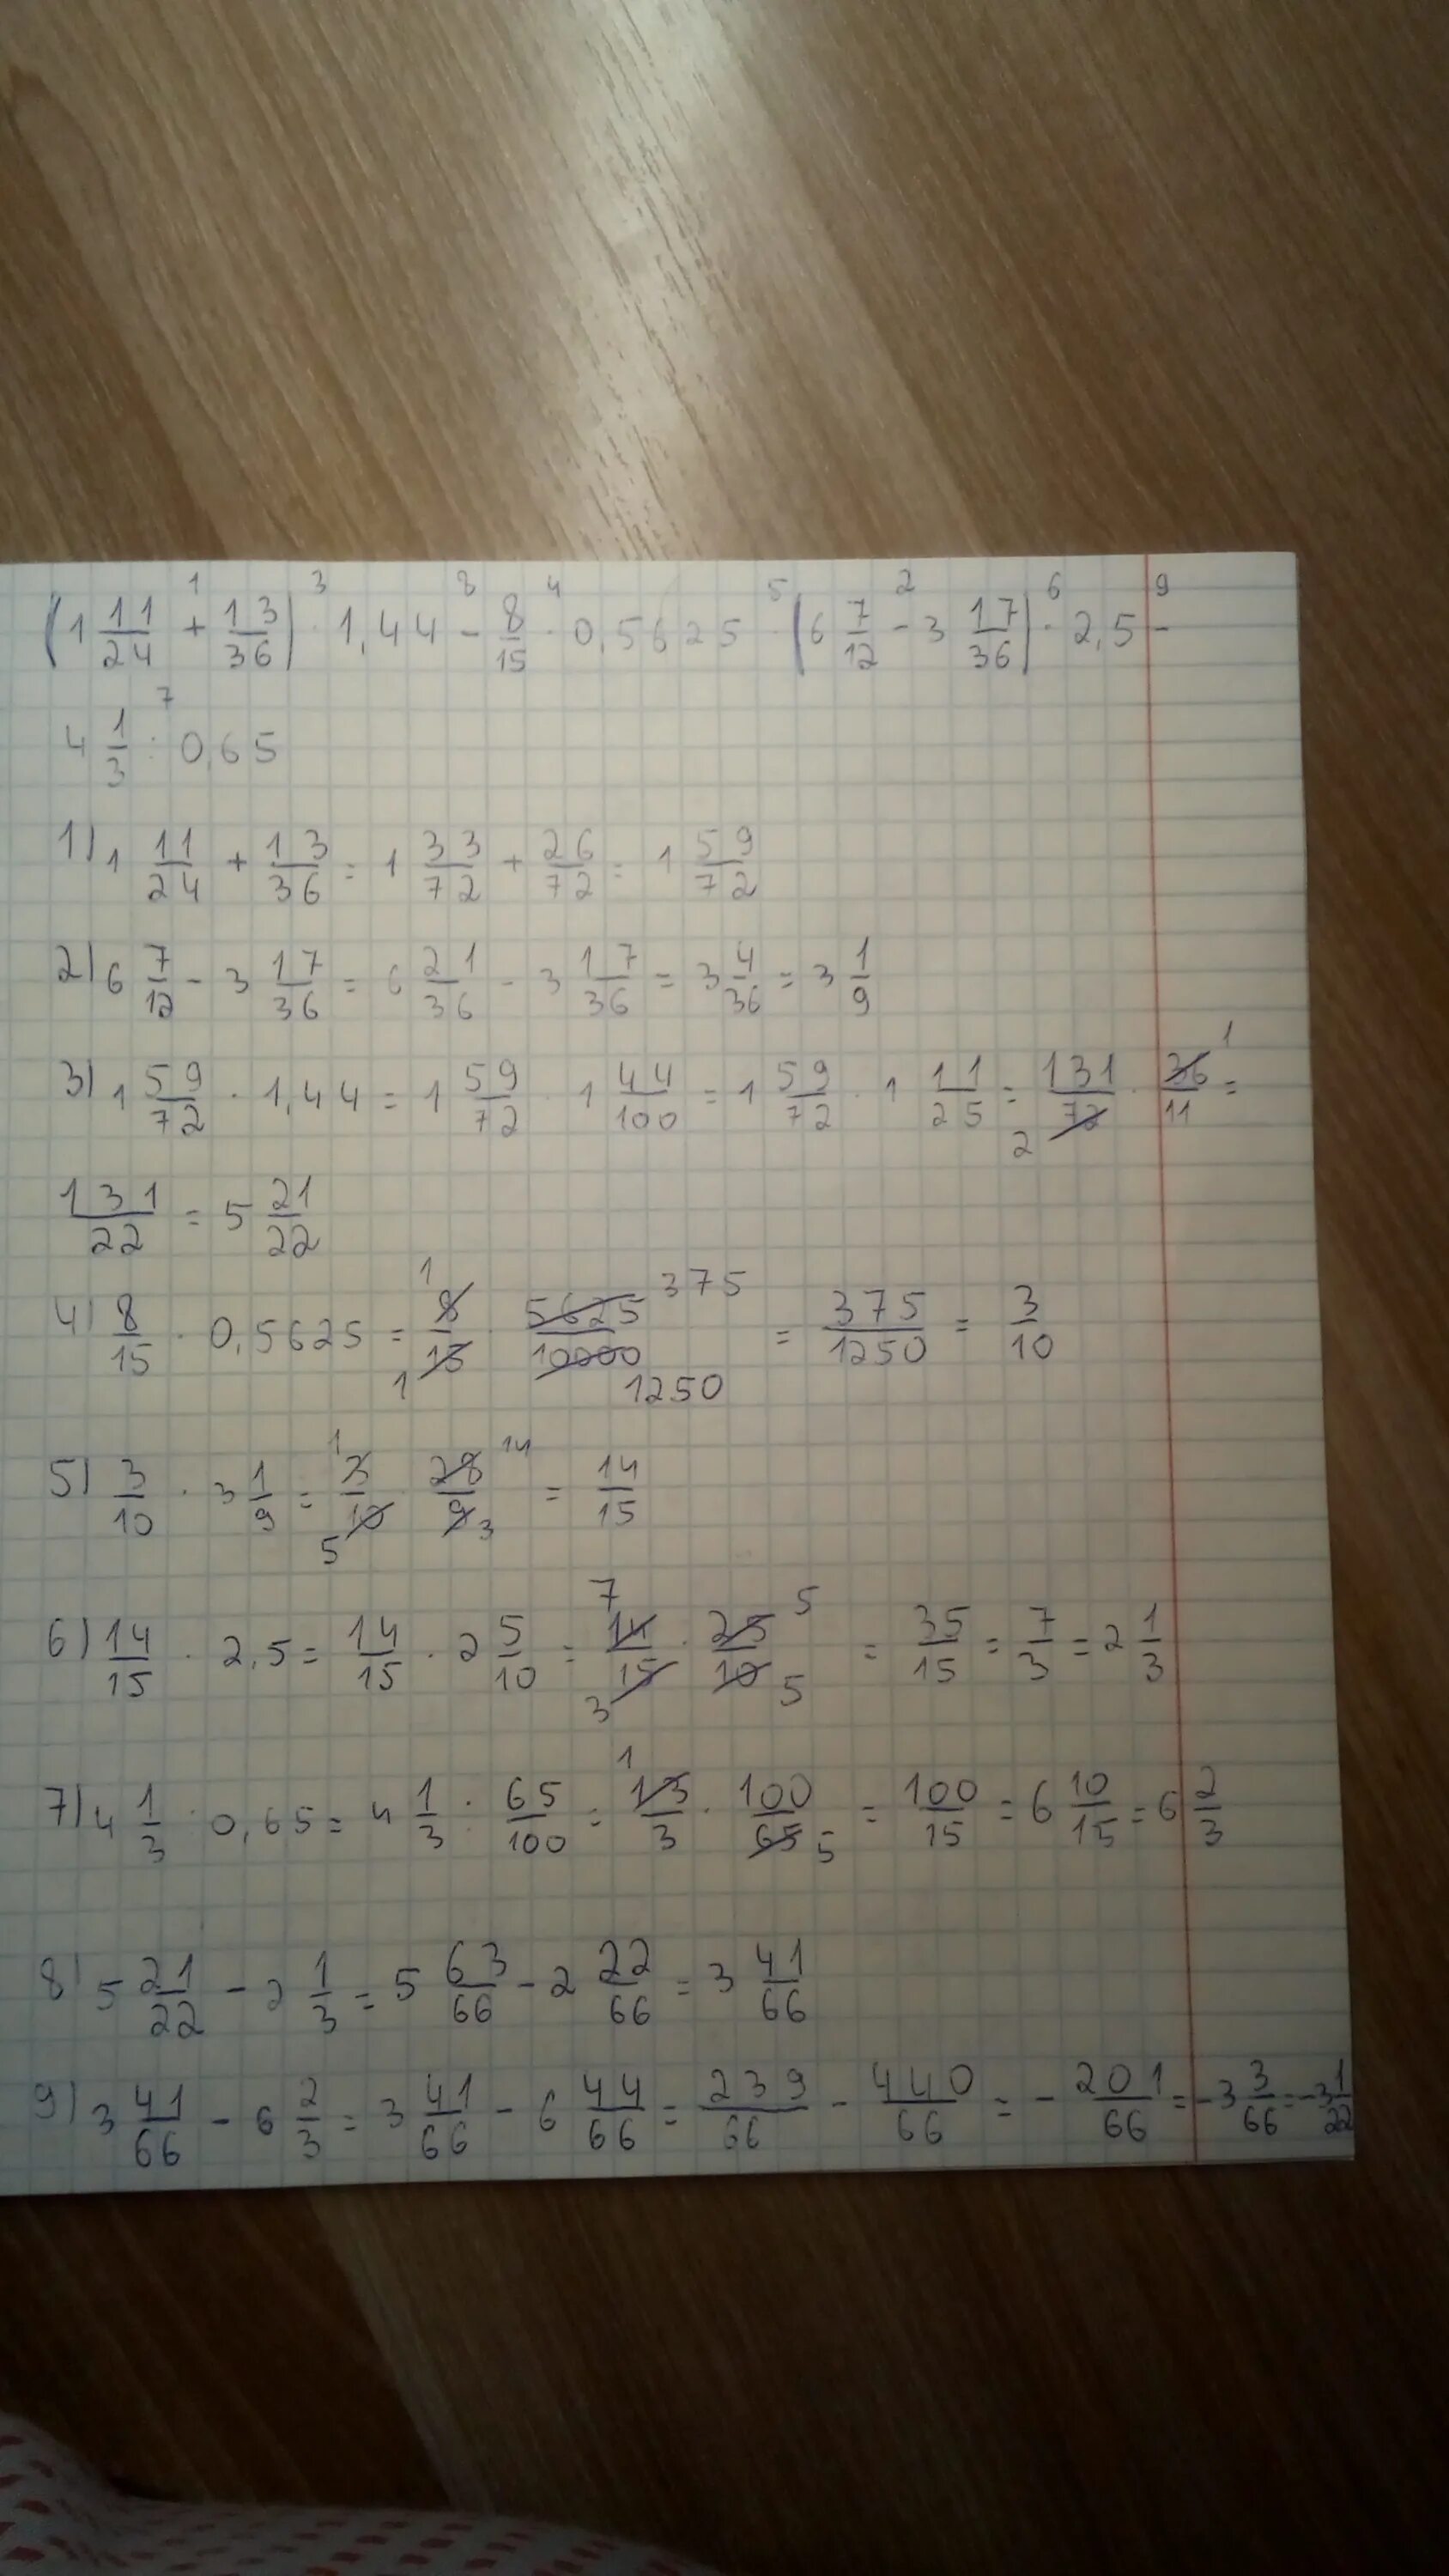 (1 11/24 + 13/36) · 1,44 - 8/15 · 0,5625 · (6 7/12 - 3 17/36) · 2,5 -
1 3 8 4 5 2 6 9
4 1/3 : 0,65
7
1) 1 11/24 + 13/36 = 1 33/72 + 26/72 = 1 59/72
2) 6 7/12 - 3 17/36 = 6 21/36 - 3 17/36 = 3 4/36 = 3 1/9
3) 1 59/72 · 1,44 = 1 59/72 · 1 44/100 = 1 59/72 · 1 11/25 = 131/72 · 36/11 =
2 1
131/22 = 5 21/22
4) 8/15 · 0,5625 = 8/15 · 5625/10000 = 375/1250 = 3/10
1 1 375 1250
5) 3/10 · 3 1/9 = 3/10 · 28/9 = 14/15
1 5 14 3
6) 14/15 · 2,5 = 14/15 · 2 5/10 = 14/15 · 25/10 = 35/15 = 7/3 = 2 1/3
7 3 5 5
7) 4 1/3 : 0,65 = 4 1/3 : 65/100 = 13/3 · 100/65 = 100/15 = 6 10/15 = 6 2/3
1 5
8) 5 21/22 - 2 1/3 = 5 63/66 - 2 22/66 = 3 41/66
9) 3 41/66 - 6 2/3 = 3 41/66 - 6 44/66 = 239/66 - 440/66 = - 201/66 = -3 3/66 = -3 1/22